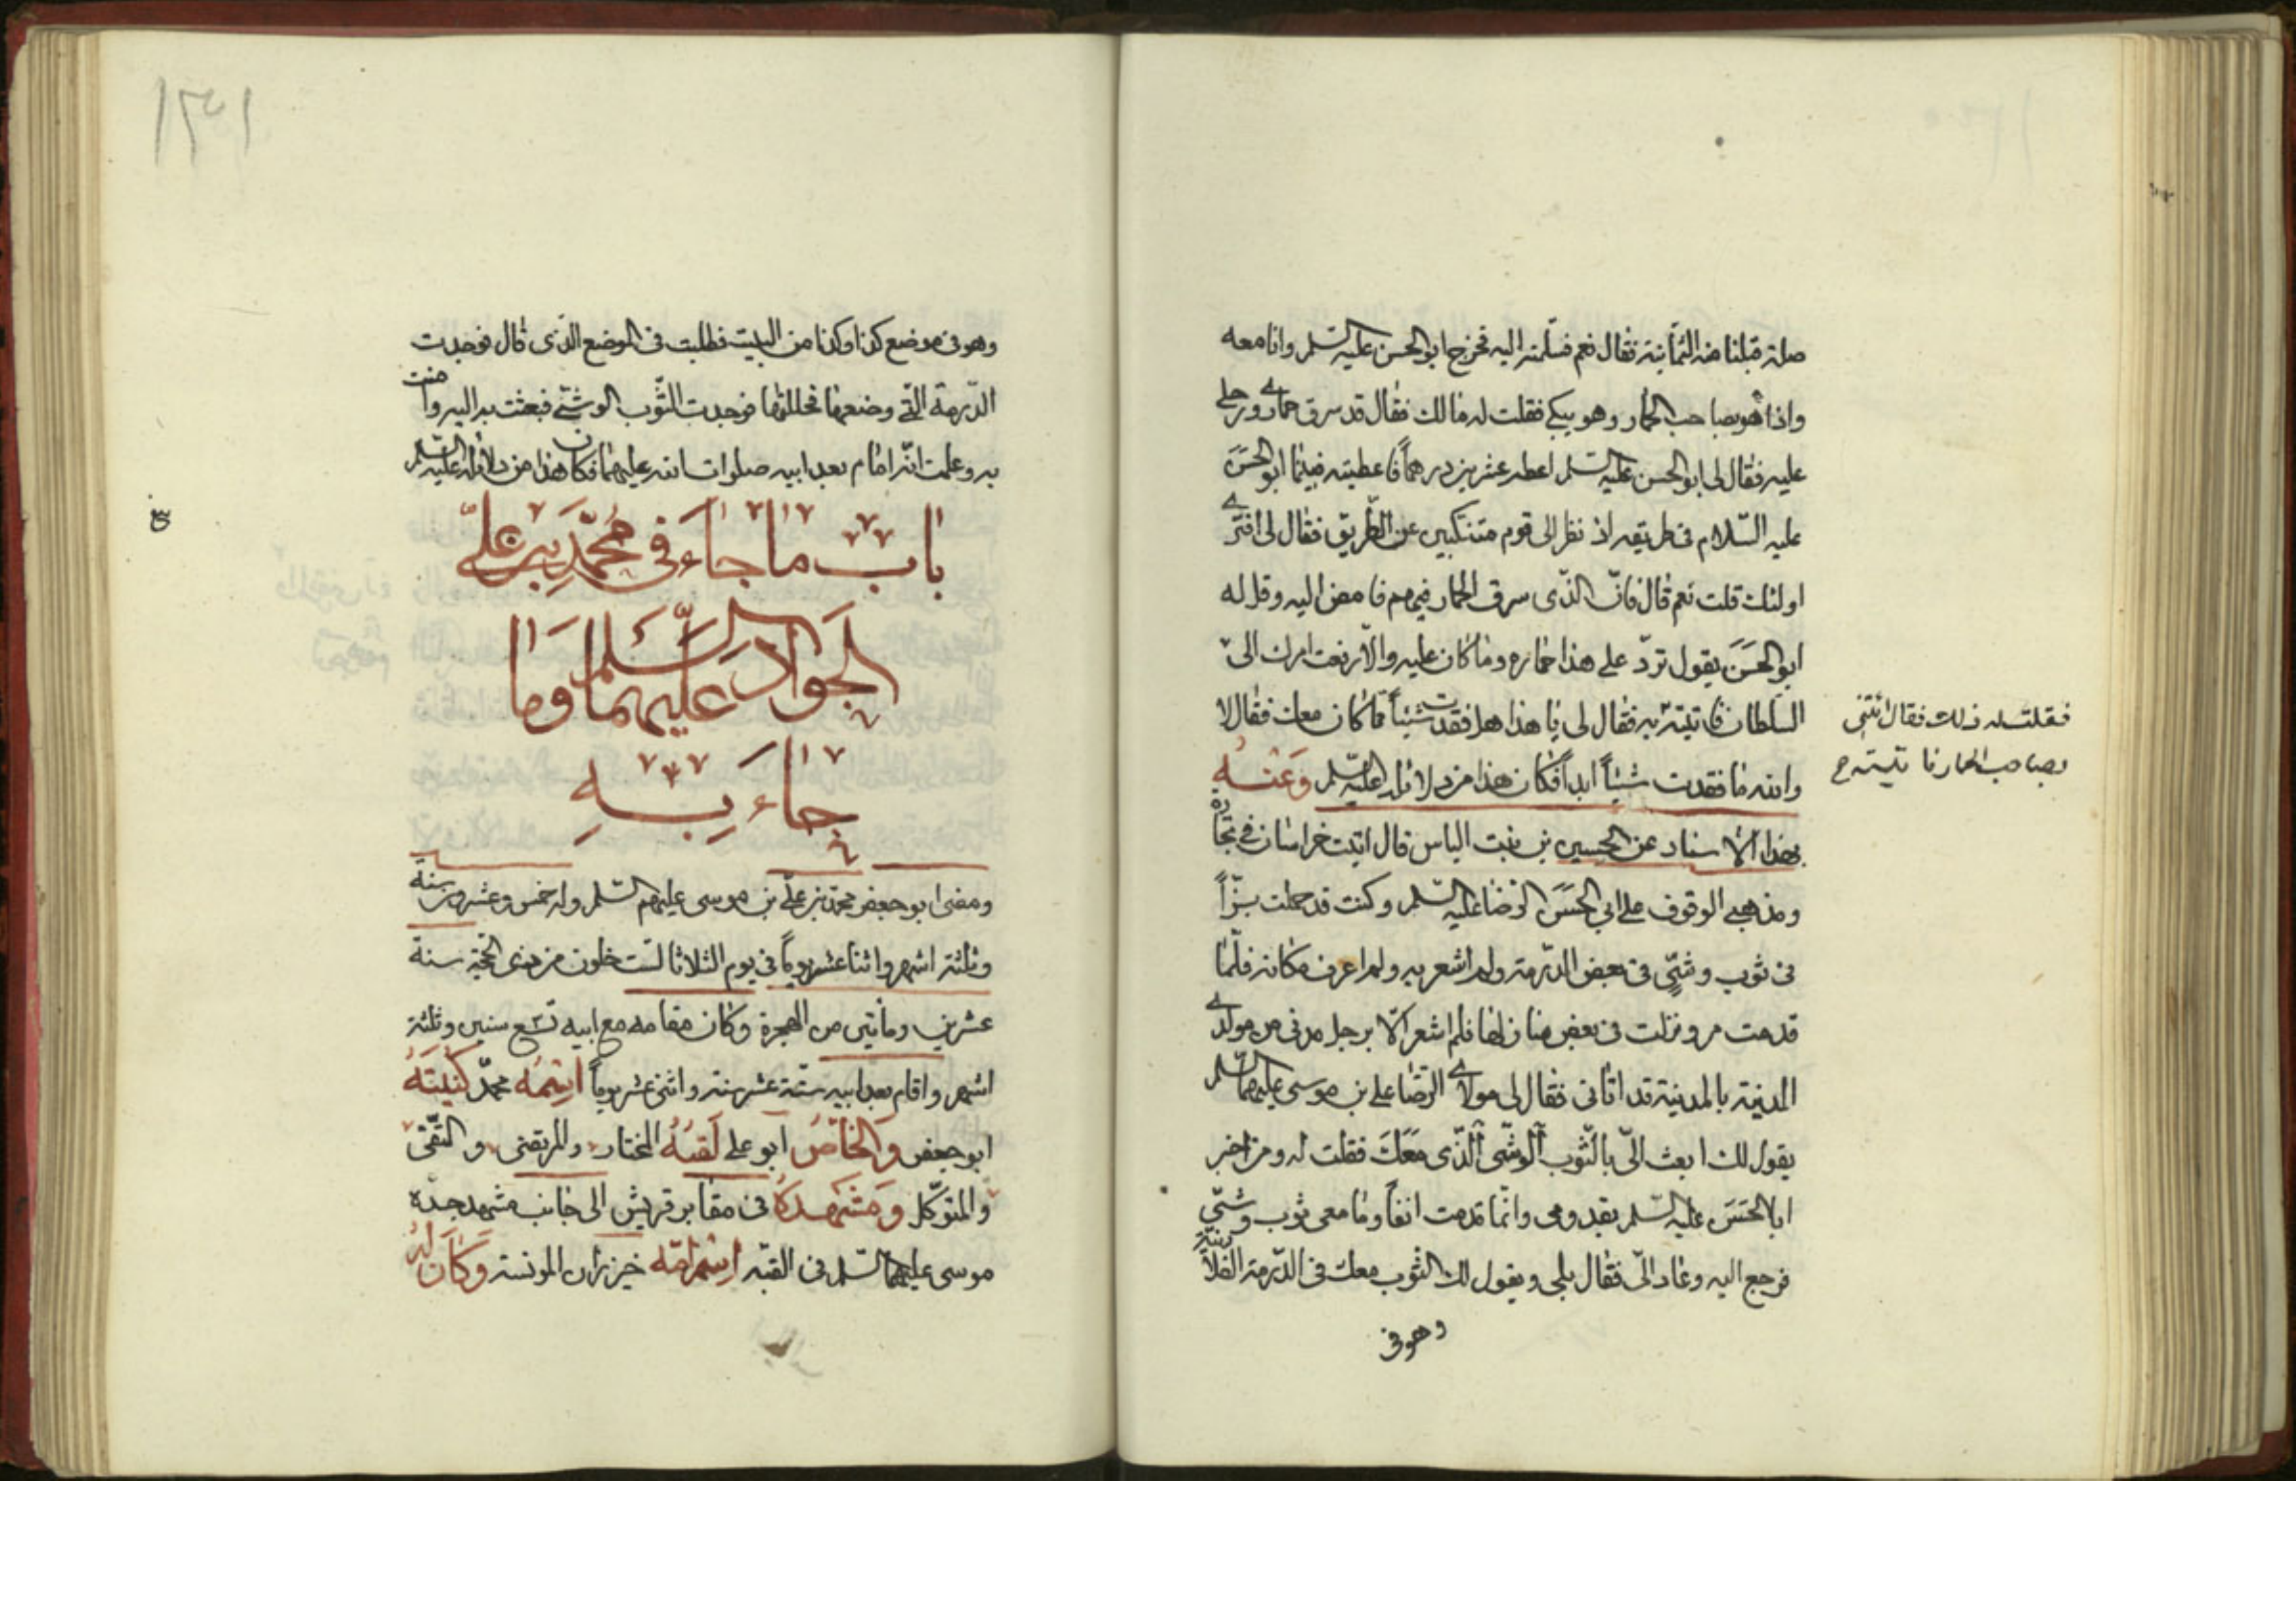 صلة قبلنا منه الثمانية فقال نعم فسلمته اليه فخرج ابو الحسن عليه السلم وانا معه
واذا هو بصاحب الحمار وهو يبكي فقلت له مالك فقال قد سرق حماري ورحلي
عليه فقال لي ابو الحسن عليه السلم اعطه عشرين درهماً فاعطيته فبينا ابو الحسن
عليه السّلام في طريقه اذ نظر الى قوم متنكبين عن الطريق فقال لي افترى
اولئك قلت نعم قال فانّ الذّي سرق الحمار فيهم فامض اليه وقل له
ابو الحسن يقول تردّ على هذا حماره وما كان عليه والّا رفعت امرك الىّ
السلطان فاتيته به فقال لي يا هذا هل فقدت شيئاً مما كان معك فقال لا
والله ما فقدت شيئاً ابداً فكان هذا من دلائله عليه السلم وَعَنْهُ
بهذا الاسناد عن الحسين بن بنت الياس قال اتيت خراسان في تجارة
ومذهبي الوقوف على ابي الحسن الرضا عليه السلم وكنت قد حملت بزّاً
في ثوب وشّي في بعض الدّرمة ولم اشعر به ولم اعرف مكانه فلمّا
قدمت مرو نزلت في بعض منازلها فلم اشعر الّا برجل مدني من مولدي
المدينة بالمدينة قد اتاني فقال لي مولاي الرّضا علي بن موسى عليهما السلم
يقول لك ابعث الىّ بالثّوب الوشّي الّذي مَعَكَ فقلت له ومن اخبر
ابا الحَسَن عليه السّلم بقدومى وانّما قدمت انفاً وما معى ثوب وشّي
فرجع اليه وعاد الىّ فقال بلى ويقول لك الثوب معك في الدّرمة الفلانية
وهو في
فقلت له ذلك فقال ائتني
بصاحب الحمار فاتيته ح
١٣١
وهو في موضع كذا وكذا من البيت فطلبت في الموضع الذّي قال فوجدت
الدّرمة التي وضعها فحللتها فوجدت الثّوب الوشّي فبعثت به اليه وامنت
به وعلمت انّه امام بعد ابيه صلوات الله عليهما فكان هذا من دلائله عليه السلم
باب ما جاء في مُحَمَّدِ بن علىّ
الجَواد عليهما السَّلم وَما
جاء بِهِ
ومضى ابو جعفر محمّد بن علىّ بن موسى عليهم السّلم وله خمس وعشرون سنة
وثلثة اشهر واثنا عشر يوماً في يوم الثلاثا لست خلون من ذي الحجّة سنة
عشرين ومأتين من الهجرة وكان مقامه مع ابيه تسع سنين وثلثة
اشهر واقام بعد ابيه ستّة عشر سنة واثني عشر يوماً اسْمُه محمّد كُنيَتَهُ
ابو جعفر وَالخاصُّ ابو علي لَقبُهُ المختار والمرتضى والتّقىّ
والمتوكّل وَمَشهدهُ في مقابر قريش الى جانب مشهد جدّه
موسى عليهما السّلم في القبّه اسْمُ امّه خيزران المونسة وَكانَ لهُ